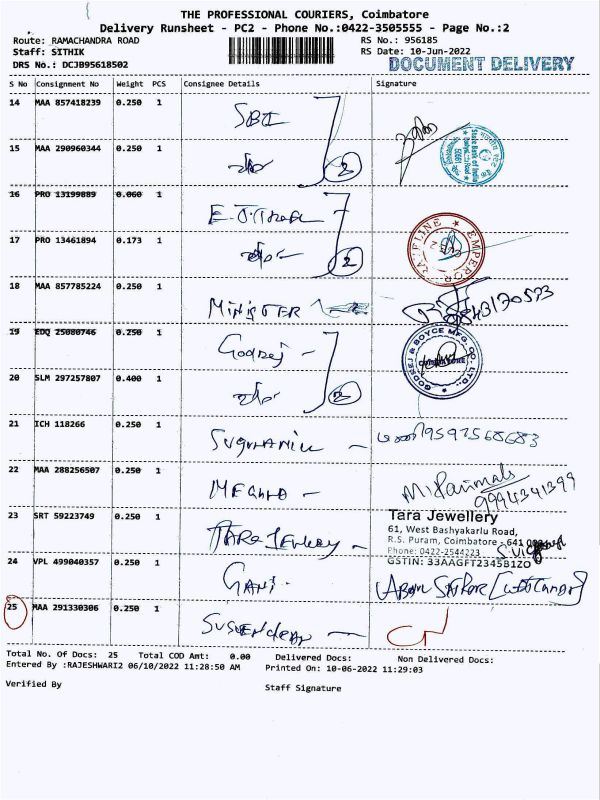 THE PROFESSIONAL COURIERS, Coimbatore
Delivery Runsheet - PC2 - Phone No.:0422-3505555 - Page No.:2
Route: RAMACHANDRA ROAD RS No.: 956185
Staff: SITHIK RS Date: 10-Jun-2022
DRS No.: DCJB95618502 DOCUMENT DELIVERY
S No Consignment No Weight PCS Consignee Details Signature
14 MAA 857418239 0.250 1 SBI
15 MAA 290960344 0.250 1 2
State Bank of India
16 PRO 13199889 0.060 1
17 PRO 13461894 0.173 1 2
EMPEROR
18 MAA 857785224 0.250 1 MINISTER 9843170573
19 EDQ 25080746 0.250 1 Godrej -
GODREJ & BOYCE MFG. CO. LTD.
COIMBATORE
20 SLM 297257807 0.400 1 2
21 ICH 118266 0.250 1 9597568683
22 MAA 288256507 0.250 1 M. Parimala
9994341399
23 SRT 59223749 0.250 1 TARA Jewellery -
Tara Jewellery
61, West Bashyakarlu Road,
R.S. Puram, Coimbatore - 641
Phone: 0422-2544223
GSTIN: 33AAGFT2345B1ZO
24 VPL 499040357 0.250 1
25 MAA 291330306 0.250 1
Total No. Of Docs: 25 Total COD Amt: 0.00 Delivered Docs: Non Delivered Docs:
Entered By :RAJESHWARI2 06/10/2022 11:28:50 AM Printed On: 10-06-2022 11:29:03
Verified By Staff Signature